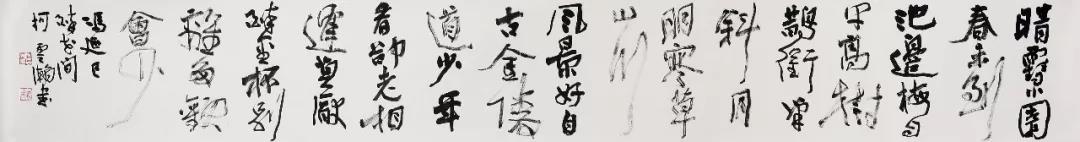 晴雪小園
春未到
池邊梅自
早高樹
鵲銜巢
斜月
明寒草
山川
風景好自
古金陵
道少年
看卻老相
逢莫厭
醉金杯別
離多歡
會少
馮延巳
醉花間
柯雲瀚書